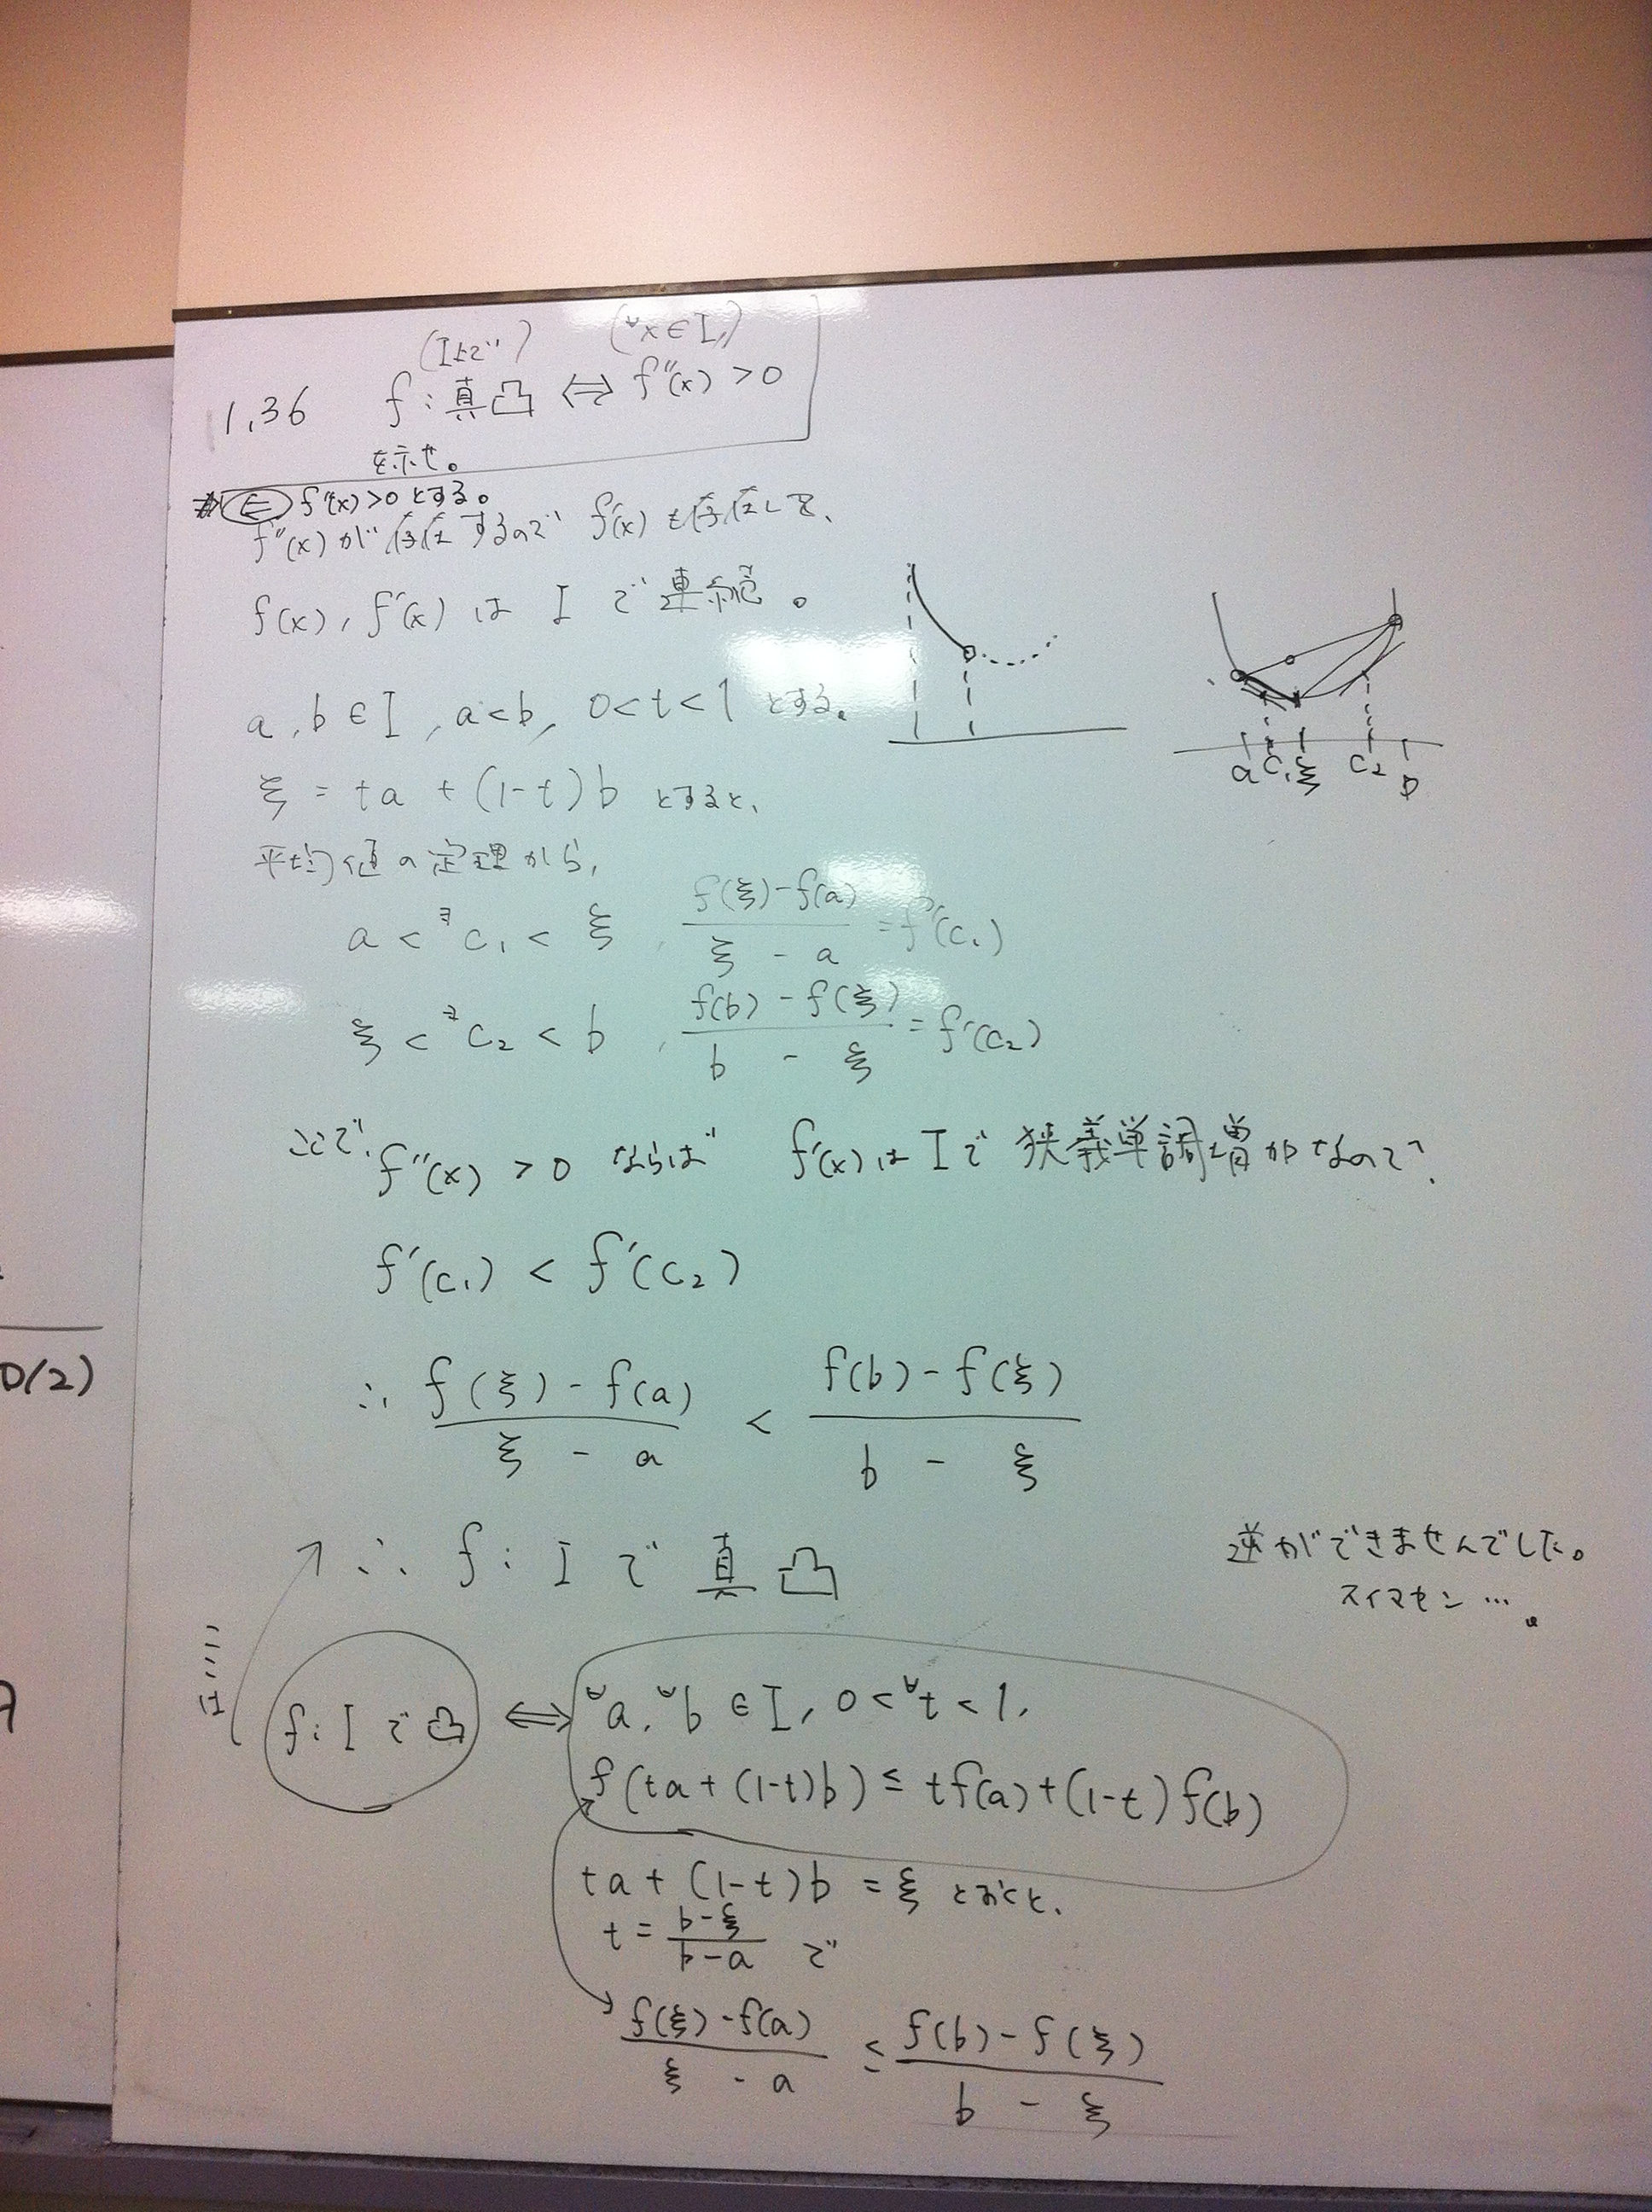 (I上で) (∀x∈I,)
1,36 f:真凸 ⇔ f''(x) > 0
を示せ。
⇐ f''(x)>0とする。
f''(x)が存在するので f'(x)も存在して、
f(x), f'(x) は I で連続。
a, b ∈ I, a<b, 0<t<1 とする。
ξ = ta + (1-t)b とすると、
平均値の定理から,
a < ∃c₁ < ξ , (f(ξ)-f(a))/(ξ - a) = f'(c₁)
ξ < ∃c₂ < b , (f(b)-f(ξ))/(b - ξ) = f'(c₂)
ここで, f''(x) > 0 ならば f'(x)は I で 狭義単調増加なので、
f'(c₁) < f'(c₂)
∴ (f(ξ)-f(a))/(ξ - a) < (f(b)-f(ξ))/(b - ξ)
∴ f: I で 真凸
逆ができませんでした。
スイマセン….
f: I で凸 ⇔ ∀a, ∀b ∈ I, 0<∀t<1,
f(ta+(1-t)b) ≤ tf(a)+(1-t)f(b)
ta+(1-t)b = ξ とおくと、
t = (b-ξ)/(b-a) で
(f(ξ)-f(a))/(ξ - a) ≤ (f(b)-f(ξ))/(b - ξ)
a c₁ ξ c₂ b
0(2)